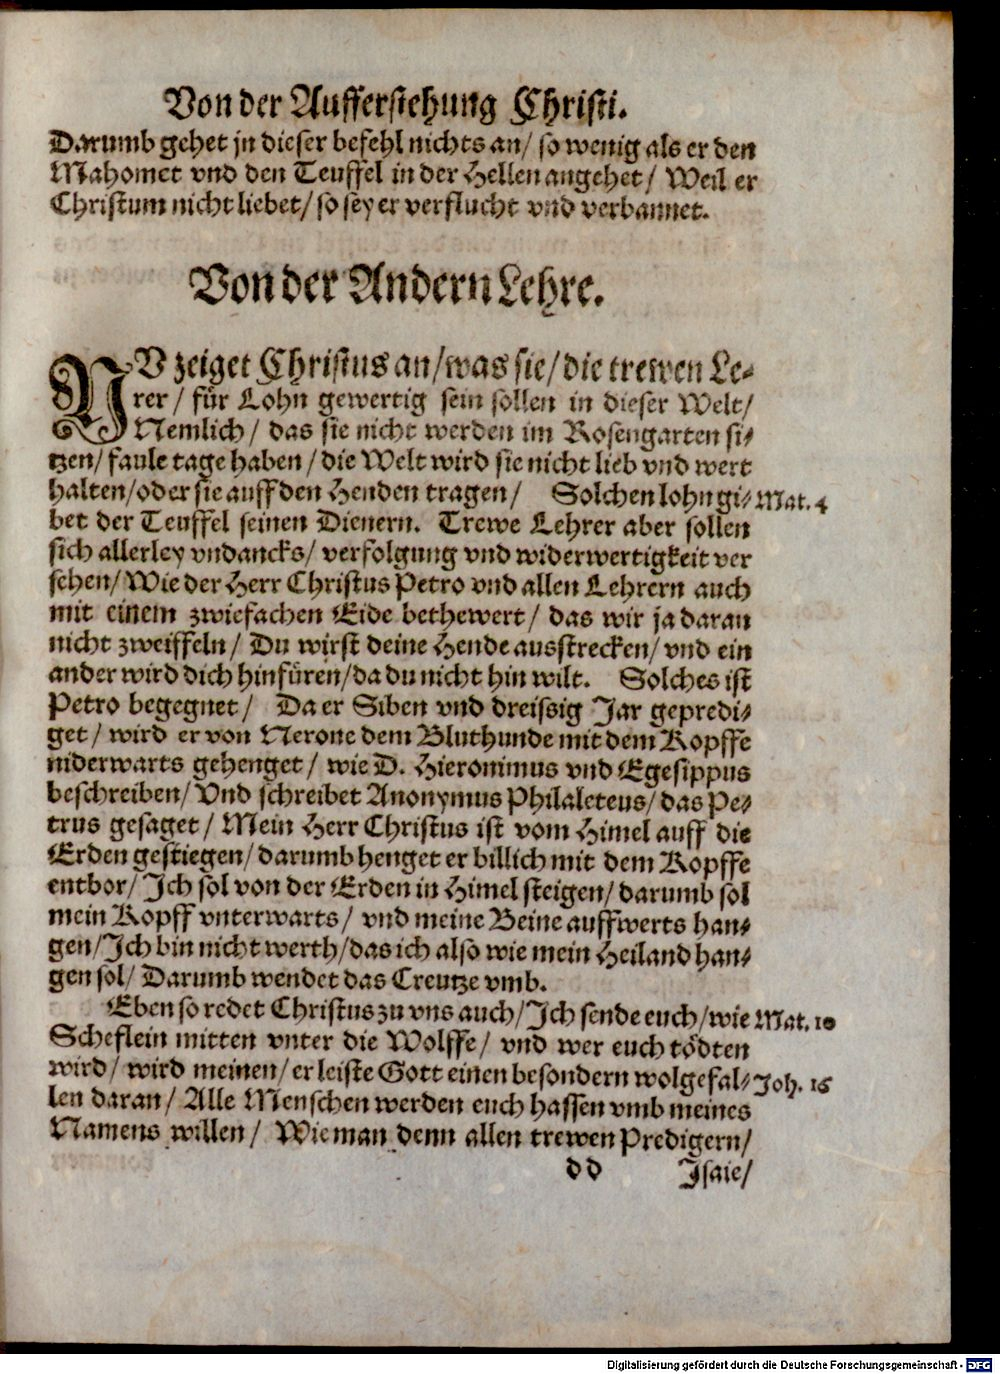 Von der Aufferstehung Christi.
Darumb gehet jn dieser befehl nichts an/ so wenig als er den
Mahomet vnd den Teuffel in der Hellen angehet/ Weil er
Christum nicht liebet/ so sey er verflucht vnd verbannet.
Von der Andern Lehre.
NV zeiget Christus an/ was sie/ die trewen Le-
rer/ für Lohn gewertig sein sollen in dieser Welt/
Nemlich/ das sie nicht werden im Rosengarten si-
tzen/ faule tage haben/ die Welt wird sie nicht lieb vnd wert
halten/ oder sie auff den Henden tragen/ Solchen lohn gi- Mat. 4
bet der Teuffel seinen Dienern. Trewe Lehrer aber sollen
sich allerley vndancks/ verfolgung vnd widerwertigkeit ver
sehen/ Wie der Herr Christus Petro vnd allen Lehrern auch
mit einem zwiefachen Eide bethewert/ das wir ja daran
nicht zweiffeln/ Du wirst deine Hende ausstrecken/ vnd ein
ander wird dich hinfüren/ da du nicht hin wilt. Solches ist
Petro begegnet/ Da er Siben vnd dreissig Jar gepredi-
get/ wird er von Nerone dem Bluthunde mit dem Kopffe
niderwarts gehenget/ wie D. Hieronimus vnd Egesippus
beschreiben/ Vnd schreibet Anonymus Philaleteus/ das Pe-
trus gesaget/ Mein Herr Christus ist vom Himel auff die
Erden gestiegen/ darumb henget er billich mit dem Kopffe
entbor/ Ich sol von der Erden in Himel steigen/ darumb sol
mein Kopff vnterwarts/ vnd meine Beine auffwerts han-
gen/ Ich bin nicht werth/ das ich also wie mein Heiland han-
gen sol/ Darumb wendet das Creutze vmb.
Eben so redet Christus zu vns auch/ Ich sende euch/ wie Mat. 10
Scheflein mitten vnter die Wolffe/ vnd wer euch tödten
wird/ wird meinen/ er leiste Gott einen besondern wolgefal- Joh. 16
len daran/ Alle Menschen werden euch hassen vmb meines
Namens willen/ Wie man denn allen trewen Predigern/
dd Isaie/
Digitalisierung gefördert durch die Deutsche Forschungsgemeinschaft - DFG